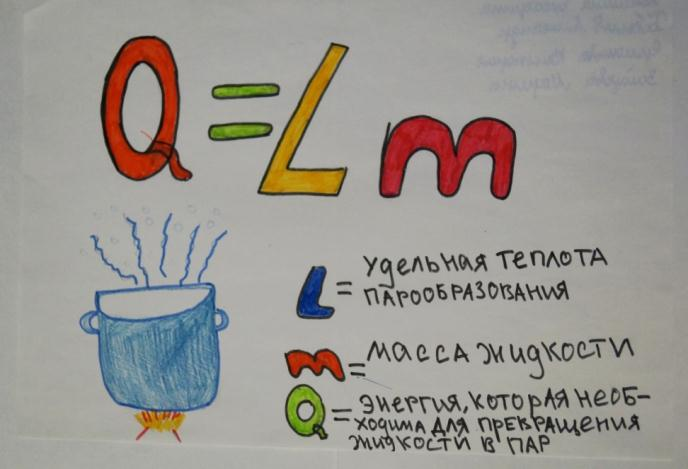 Q = L m
L = УДЕЛЬНАЯ ТЕПЛОТА
ПАРООБРАЗОВАНИЯ
m = МАССА ЖИДКОСТИ
Q = ЭНЕРГИЯ, КОТОРАЯ НЕОБ-
ХОДИМА ДЛЯ ПРЕВРАЩЕНИЯ
ЖИДКОСТИ В ПАР